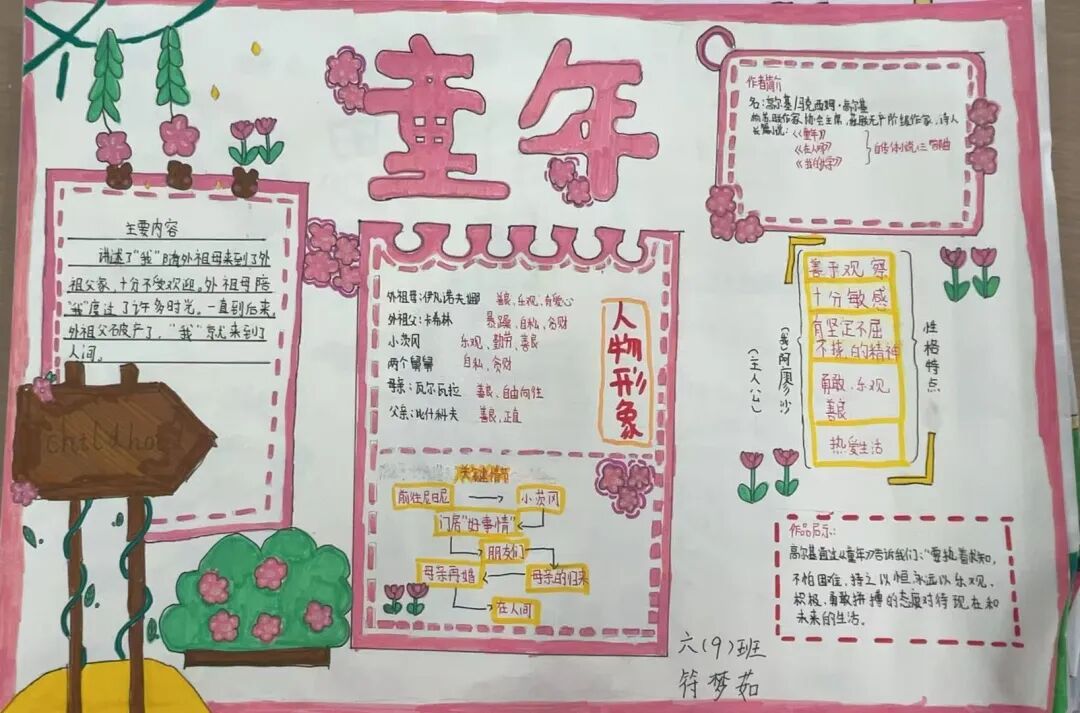 童年
主要内容
讲述了"我"随外祖母来到了外
祖父家,十分不受欢迎。外祖母陪
"我"度过了许多时光。一直到后来,
外祖父破产了,"我"就来到了
人间。
作者简介
名:高尔基/马克西姆·高尔基
前苏联作家协会主席,苏联无产阶级作家,诗人
长篇小说:《童年》
《在人间》
《我的大学》
自传体小说三部曲
外祖母:伊凡诺夫娜 善良、乐观、有爱心
外祖父:卡希林 暴躁、自私、贪财
小茨冈 乐观、勤劳、善良
两个舅舅 自私、贪财
母亲:瓦尔瓦拉 善良、自由向往
父亲:比什科夫 善良、正直
人物形象
关键情节
前往尼日尼
小茨冈
门居"好事情"
朋友们
母亲的归来
母亲再婚
在人间
善于观察
十分敏感
有坚定不屈
不挠的精神
勇敢、乐观
善良
热爱生活
性格特点
(我)阿廖沙
(主人公)
作品启示:
高尔基通过《童年》告诉我们:"要执着求知,
不怕困难,持之以恒,永远以乐观、
积极、勇敢拼搏的态度对待现在和
未来的生活。
六(9)班
符梦茹